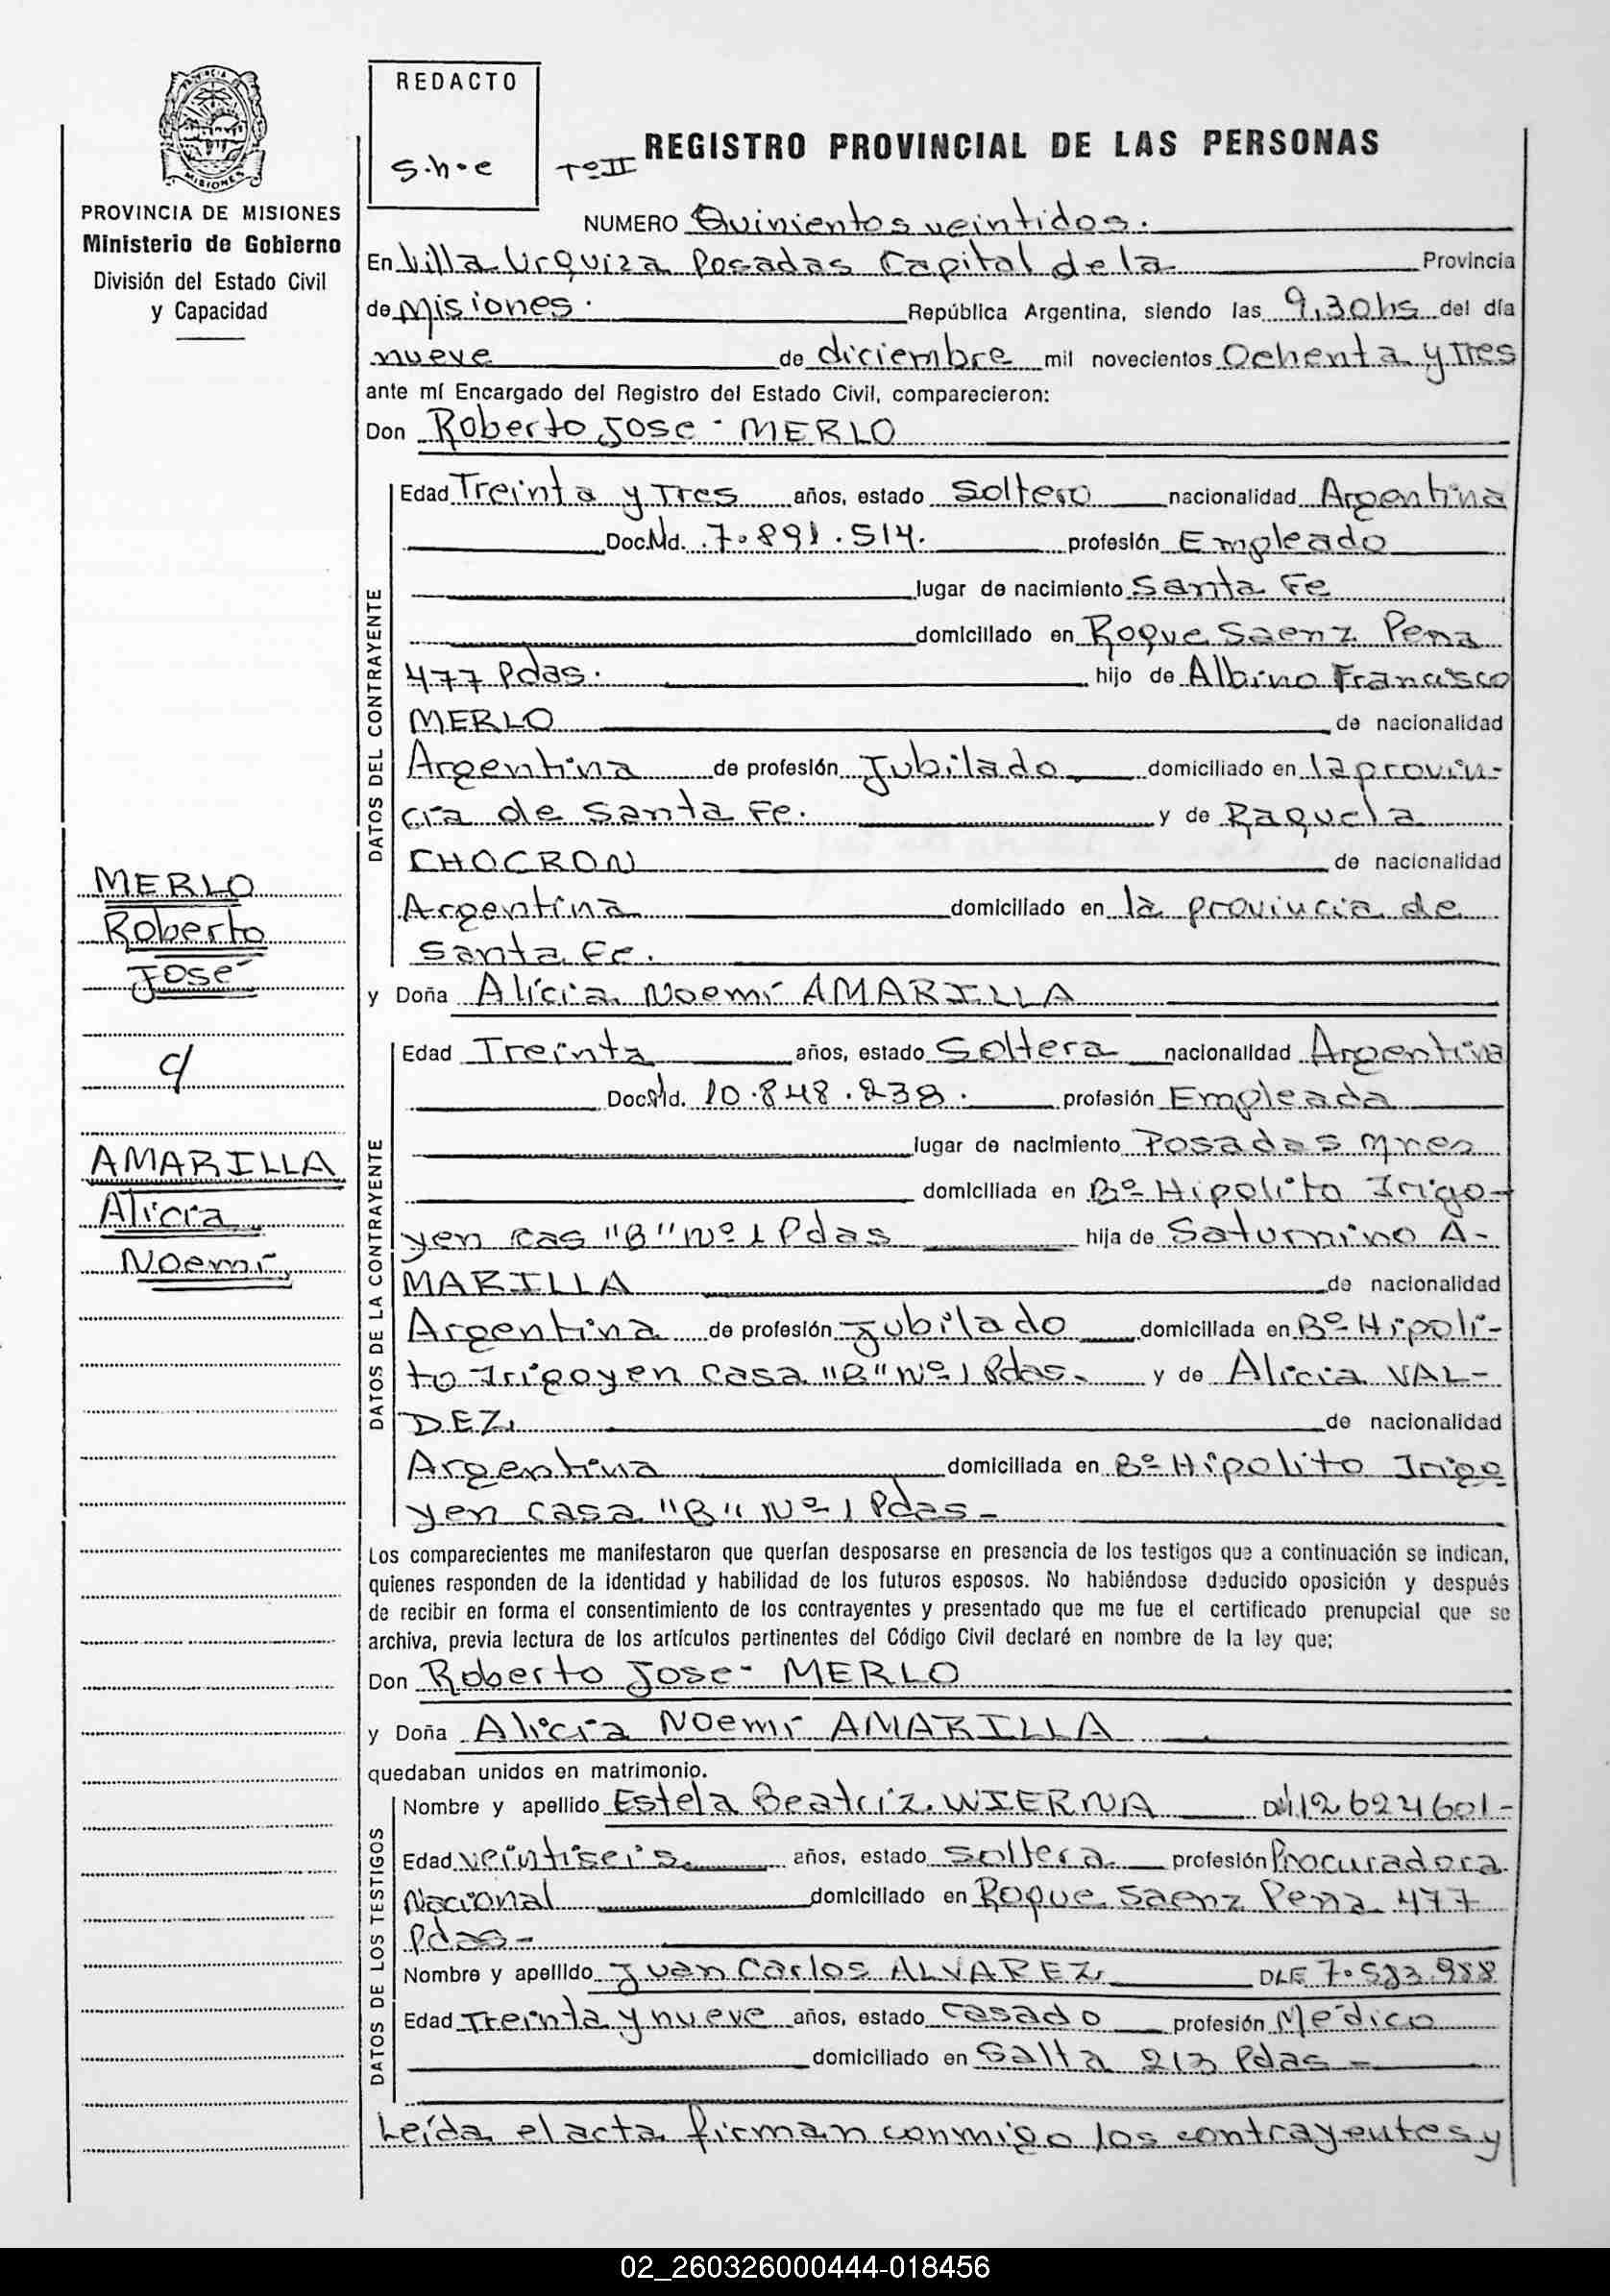 PROVINCIA DE MISIONES
Ministerio de Gobierno
División del Estado Civil
y Capacidad
MERLO
Roberto
José
c/
AMARILLA
Alicia
Noemí
REDACTO
S.h.e
Tº II
REGISTRO PROVINCIAL DE LAS PERSONAS
NUMERO Quinientos veintidos.
En Villa Urquiza Posadas Capital de la Provincia
de Misiones. República Argentina, siendo las 9,30hs del día
nueve de diciembre mil novecientos Ochenta y Tres
ante mí Encargado del Registro del Estado Civil, comparecieron:
Don Roberto José MERLO
DATOS DEL CONTRAYENTE
Edad Treinta y Tres años, estado Soltero nacionalidad Argentina
Doc.Nd. 7.891.514. profesión Empleado
lugar de nacimiento Santa Fe
domiciliado en Roque Saenz Pena
477 Pdas. hijo de Albino Francisco
MERLO de nacionalidad
Argentina de profesión Jubilado domiciliado en la provin-
cia de Santa Fe. y de Raquela
CHOCRON de nacionalidad
Argentina domiciliado en la provincia de
Santa Fe.
y Doña Alicia Noemí AMARILLA
DATOS DE LA CONTRAYENTE
Edad Treinta años, estado Soltera nacionalidad Argentina
Doc.Nd. 10.848.238. profesión Empleada
lugar de nacimiento Posadas Mnes
domiciliada en Bº Hipolito Irigo-
yen cas "B" Nº 1 Pdas hija de Saturnino A-
MARILLA de nacionalidad
Argentina de profesión Jubilado domiciliada en Bº Hipoli-
to Irigoyen casa "B" Nº 1 Pdas. y de Alicia VAL-
DEZ de nacionalidad
Argentina domiciliada en Bº Hipolito Irigo
yen casa "B" Nº 1 Pdas-
Los comparecientes me manifestaron que querían desposarse en presencia de los testigos que a continuación se indican,
quienes responden de la identidad y habilidad de los futuros esposos. No habiéndose deducido oposición y después
de recibir en forma el consentimiento de los contrayentes y presentado que me fue el certificado prenupcial que se
archiva, previa lectura de los artículos pertinentes del Código Civil declaré en nombre de la ley que;
Don Roberto José MERLO
y Doña Alicia Noemí AMARILLA
quedaban unidos en matrimonio.
DATOS DE LOS TESTIGOS
Nombre y apellido Estela Beatriz WIERNA 12624601-
Edad veintiseis años, estado Soltera profesión Procuradora
Nacional domiciliado en Roque Saenz Pena 477
Pdas-
Nombre y apellido Juan Carlos ALVAREZ DLE 7.583.988
Edad Treinta y nueve años, estado casado profesión Médico
domiciliado en Salta 213 Pdas-
Leída el acta firman conmigo los contrayentes y
02_260326000444-018456